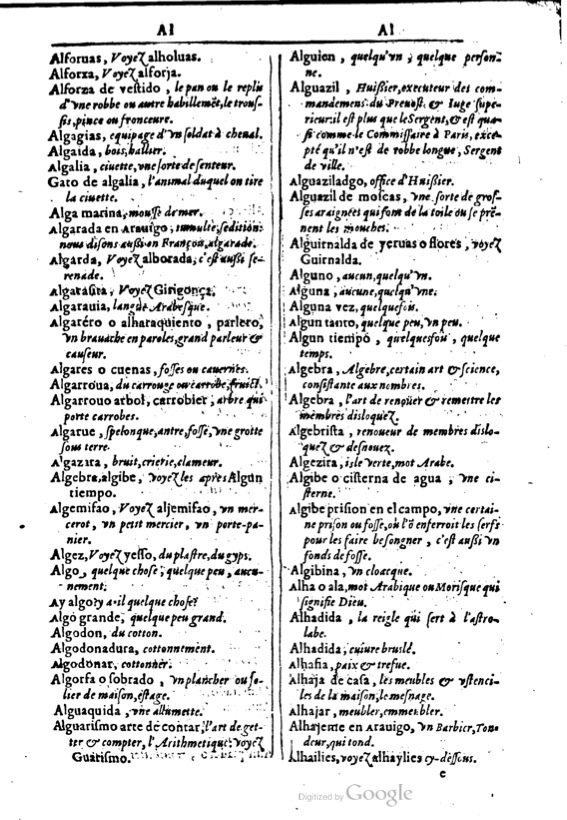 Al
Alforuas, Voyez alholuas.
Alforza, Voyez alforja.
Alforza de vestido, le pan ou le replis
d'vne robbe ou autre habillemēt, le trous-
sis, pince ou fronceure.
Algagias, equipage d'vn soldat à cheual.
Algaida, bois, hallier.
Algalia, ciuette, vne sorte de senteur.
Gato de algalia, l'animal duquel on tire
la ciuette.
Alga marina, mousse de mer.
Algarada en Arauigo, tumulte, sedition:
nous disons aussi en François, algarade.
Algarda, Voyez alborada; c'est aussi se-
renade.
Algarauita, Voyez Girigonça.
Algarauia, langue Arabesque.
Algaréro o alharaquiento, parlero,
vn brauache en paroles, grand parleur &
causeur.
Algares o cuenas, fosses ou cauernes.
Algarroua, du carrouge ou carrobe, fruict.
Algarrouo arbol, carrobier, arbre qui
porte carrobes.
Algarue, spelonque, antre, fosse, vne grotte
sous terre.
Algazara, bruit, crierie, clameur.
Algebra, algibe, voyez les apres Algun
tiempo.
Algemifao, Voyez aljemifao, vn mer-
cerot, vn petit mercier, vn porte-pa-
nier.
Algez, Voyez yesso, du plastre, du gyps.
Algo, quelque chose, quelque peu, aucu-
nement.
Ay algo? y a-il quelque chose?
Algo grande, quelque peu grand.
Algodon, du cotton.
Algodonadura, cottonnement.
Algodonar, cottonner.
Algorfa o sobrado, vn plancher ou so-
lier de maison, estage.
Alguaquida, vne allumette.
Alguarismo arte de contar, l'art de get-
ter & compter, l'Arithmetique, voyez
Guarismo.
Al
Alguien, quelqu'vn, quelque person-
ne.
Alguazil, Huißier, executeur des com-
mandemens du Preuost, & Iuge supe-
rieur: il est plus que le Sergent, & est qua-
si comme le Commissaire à Paris, exce-
pté qu'il n'est de robbe longue, Sergent
de ville.
Alguaziladgo, office d'Huißier.
Alguazil de moscas, vne sorte de gros-
ses araignées qui font de la toile ou se prē-
nent les mouches.
Alguirnalda de yeruas o flores, voyez
Guirnalda.
Alguno, aucun, quelqu'vn.
Alguna, aucune, quelqu'vne.
Alguna vez, quelquesois.
Algun tanto, quelque peu, vn peu.
Algun tiempo, quelquesfou, quelque
temps.
Algebra, Algebre, certain art & science,
consistante aux nombres.
Algebra, l'art de renoüer & remettre les
membres disloquez.
Algebrista, renoueur de membres dislo-
quez & desnouez.
Algezira, isle verte, mot Arabe.
Algibe o cisterna de agua, vne ci-
sterne.
Algibe prision en el campo, vne certai-
ne prison ou fosse, où l'ō enferroit les serfs
pour les faire besongner, c'est aussi vn
fonds de fosse.
Algibina, vn cloacque.
Alha o ala, mot Arabique ou Morisque qui
signifie Dieu.
Alhadida, la reigle qui sert à l'astro-
labe.
Alhadida, cuiure bruslé.
Alhafia, paix & trefue.
Alhaja de casa, les meubles & vstenci-
les de la maison, le mesnage.
Alhajar, meubler, emmeubler.
Alhajeme en Arauigo, vn Barbier, Ton-
deur, qui tond.
Alhailies, voyez alhaylies cy-dessous.
e
Digitized by Google